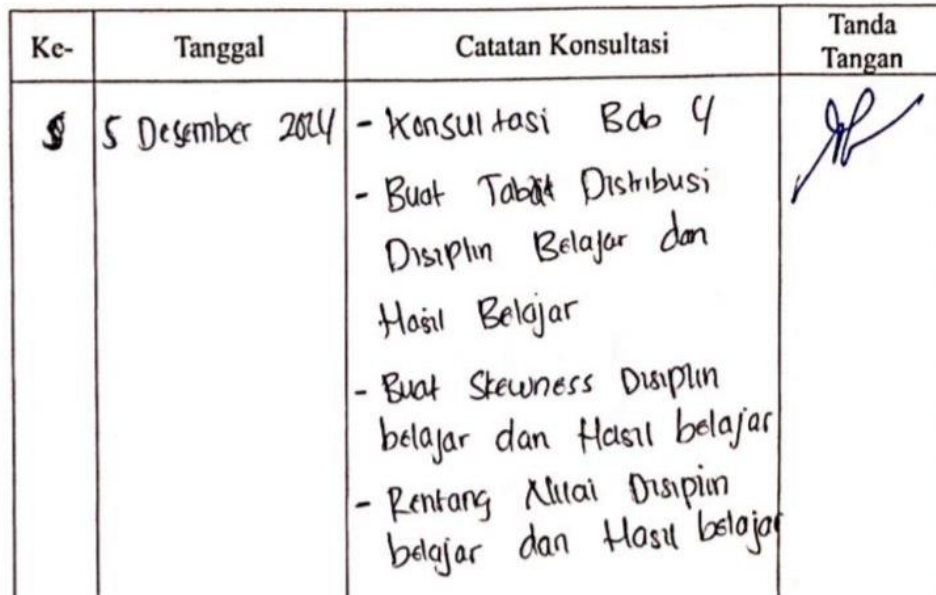 Ke- Tanggal Catatan Konsultasi Tanda Tangan
5 Desember 2024 - Konsultasi Bab 4
- Buat Tabel Distribusi
Disiplin Belajar dan
Hasil Belajar
- Buat Skewness Disiplin
belajar dan Hasil belajar
- Rentang Nilai Disiplin
belajar dan Hasil belajar